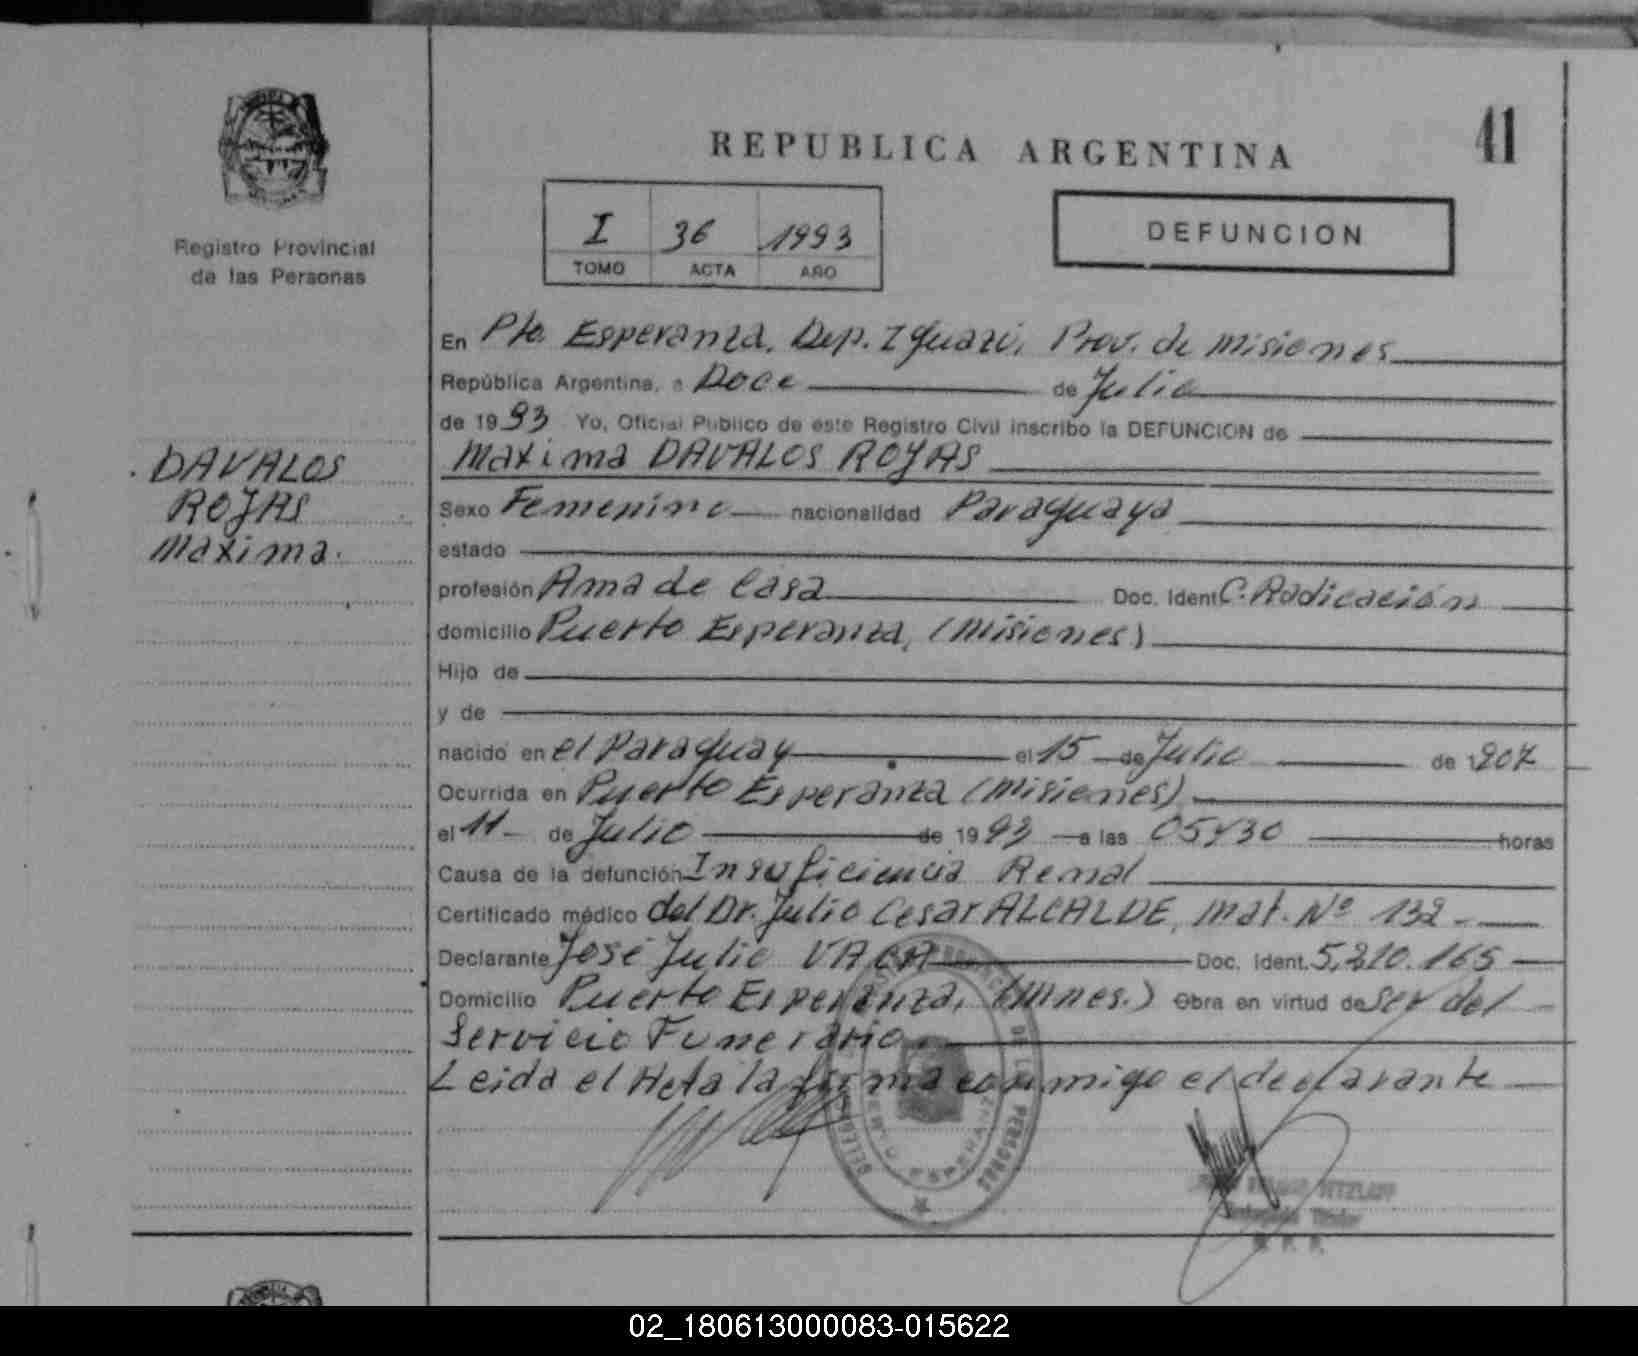 41
REPUBLICA ARGENTINA
Registro Provincial
de las Personas
I 36 1993
TOMO ACTA AÑO
DEFUNCION
DAVALOS
ROJAS
Maxima.
En Pto. Esperanza, Dep. Iguazú, Prov. de Misiones
República Argentina, a Doce de Julio
de 1993 Yo, Oficial Publico de este Registro Civil inscribo la DEFUNCION de
Maxima DAVALOS ROJAS
Sexo Femenino nacionalidad Paraguaya
estado
profesión Ama de Casa Doc. Ident. C. Radicación
domicilio Puerto Esperanza, (Misiones)
Hijo de
y de
nacido en el Paraguay el 15 de Julio de 1907
Ocurrida en Puerto Esperanza (Misiones)
el 11 de Julio de 1993 a las 05y30 horas
Causa de la defunción Insuficiencia Renal
Certificado médico del Dr. Julio Cesar ALCALDE, Mat. Nº 132
Declarante José Julio VACA Doc. Ident. 5.210.165
Domicilio Puerto Esperanza, (Mnes.) Obra en virtud de ser del
Servicio Funerario.
Leida el Acta la firma conmigo el declarante
DE LAS PERSONAS
ESPERANZA
02_180613000083-015622